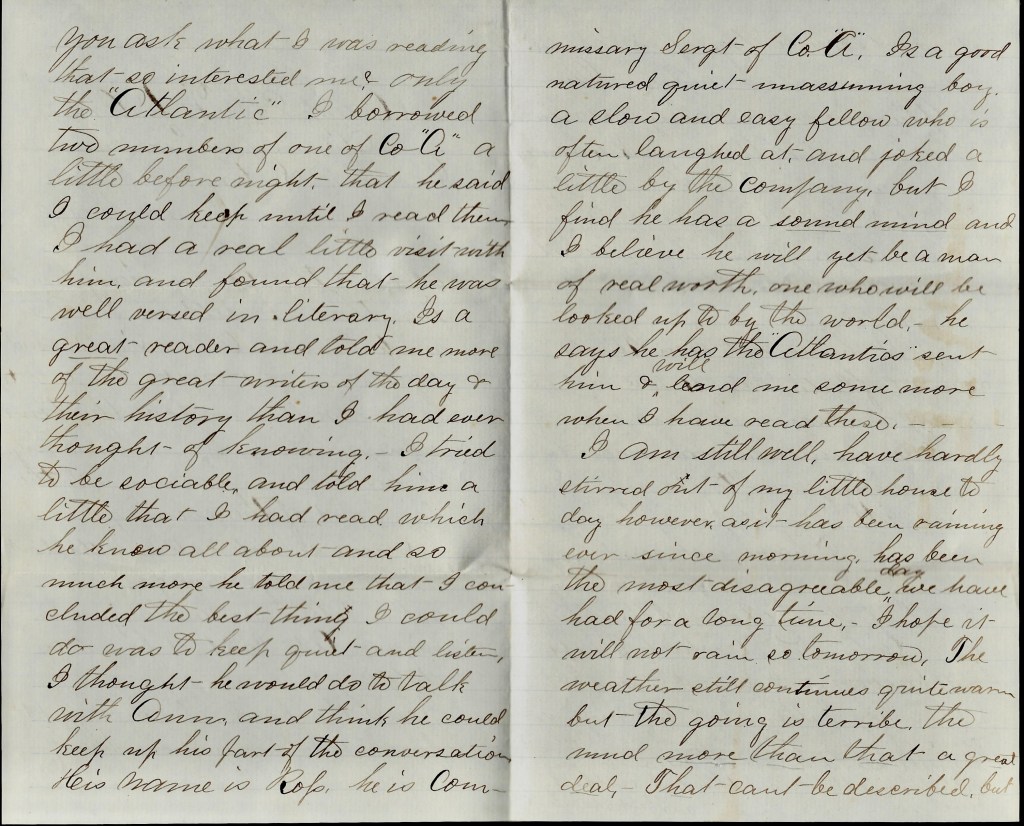 you ask what I was reading
that so interested me? only
the "Atlantic" I borrowed
two numbers of one of Co "A" a
little before night. that he said
I could keep until I read them
I had a real little visit with
him, and found that he was
well versed in literary. Is a
great reader and told me more
of the great writers of the day &
their history than I had ever
thought of knowing. - I tried
to be sociable, and told him a
little that I had read which
he know all about and so
much more he told me that I con-
cluded the best thing I could
do was to keep quiet and listen,
I thought he would do to talk
with Ann, and think he could
keep up his part of the conversation
His name is Ross. he is Com-
missary Sergt of Co. "A". Is a good
natured quiet unassuming boy.
a slow and easy fellow who is
often laughed at, and joked a
little by the company, but I
find he has a sound mind and
I believe he will yet be a man
of real worth. one who will be
looked up to by the world, - he
says he has the "Atlantics" sent
him & will lend me some more
when I have read these. - -
I am still well, have hardly
stirred out of my little house to
day however, as it has been raining
ever since morning, has been
the most disagreeable day we have
had for a long time, - I hope it
will not rain so tomorrow, The
weather still continues quite warm
but the going is terribe. the
mud more than that a great
deal, - That cant be described, but